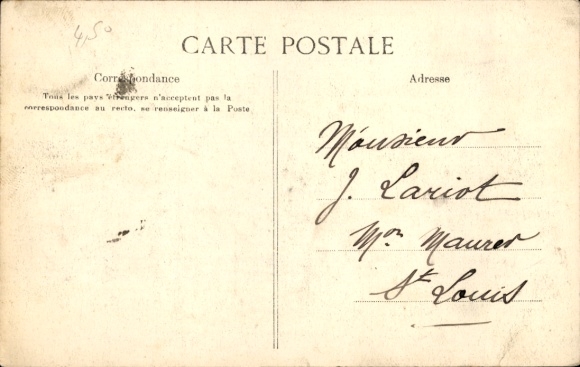 4,50
CARTE POSTALE
Correspondance
Tous les pays étrangers n'acceptent pas la
correspondance au recto, se renseigner à la Poste
Adresse
Monsieur
J. Lariot
Mon Maurer
St Louis